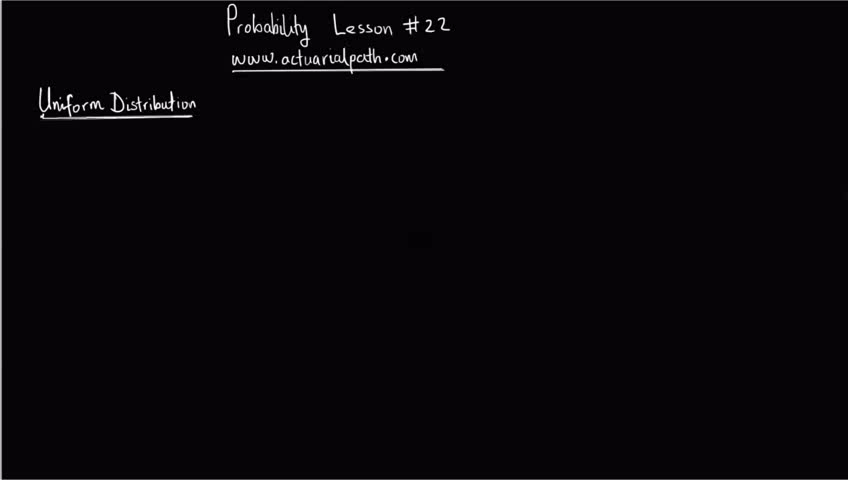 Probability Lesson #22
www.actuarialpath.com
Uniform Distribution